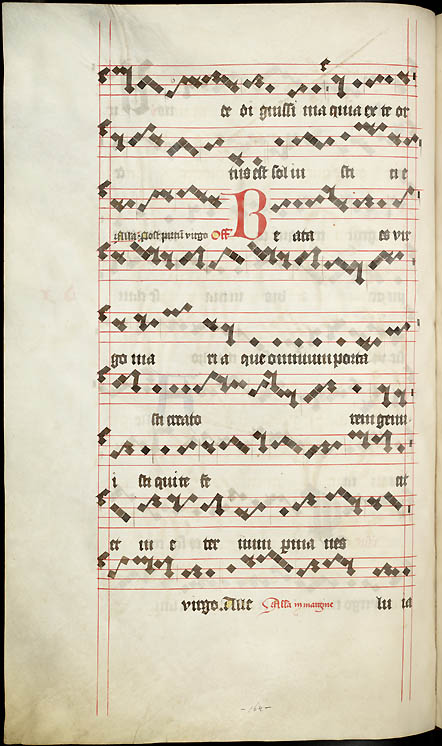 te di gnissi ma quia ex te or
tus est sol iu sti ti e
Alla: Post partū virgo Off B e ata es vir
go ma ri a que omnium porta
sti creato rem genu
i sti qui te fe cit
et in e ter num pma nes
virgo. Alle Alla in margine lu ia
-164-